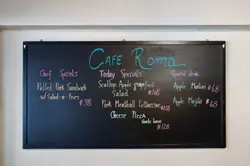 CAFE ROMA
Chef Specials
Pulled Pork Sandwich
w/ Salad -n- Fries
$38
Today Specials
Scallop Apple grapefruit
Salad $108
Pork Meatball Fettuccine
$108
Cheese Pizza
$128
Special drink
Apple Martini
$68
Apple Mojito
$68